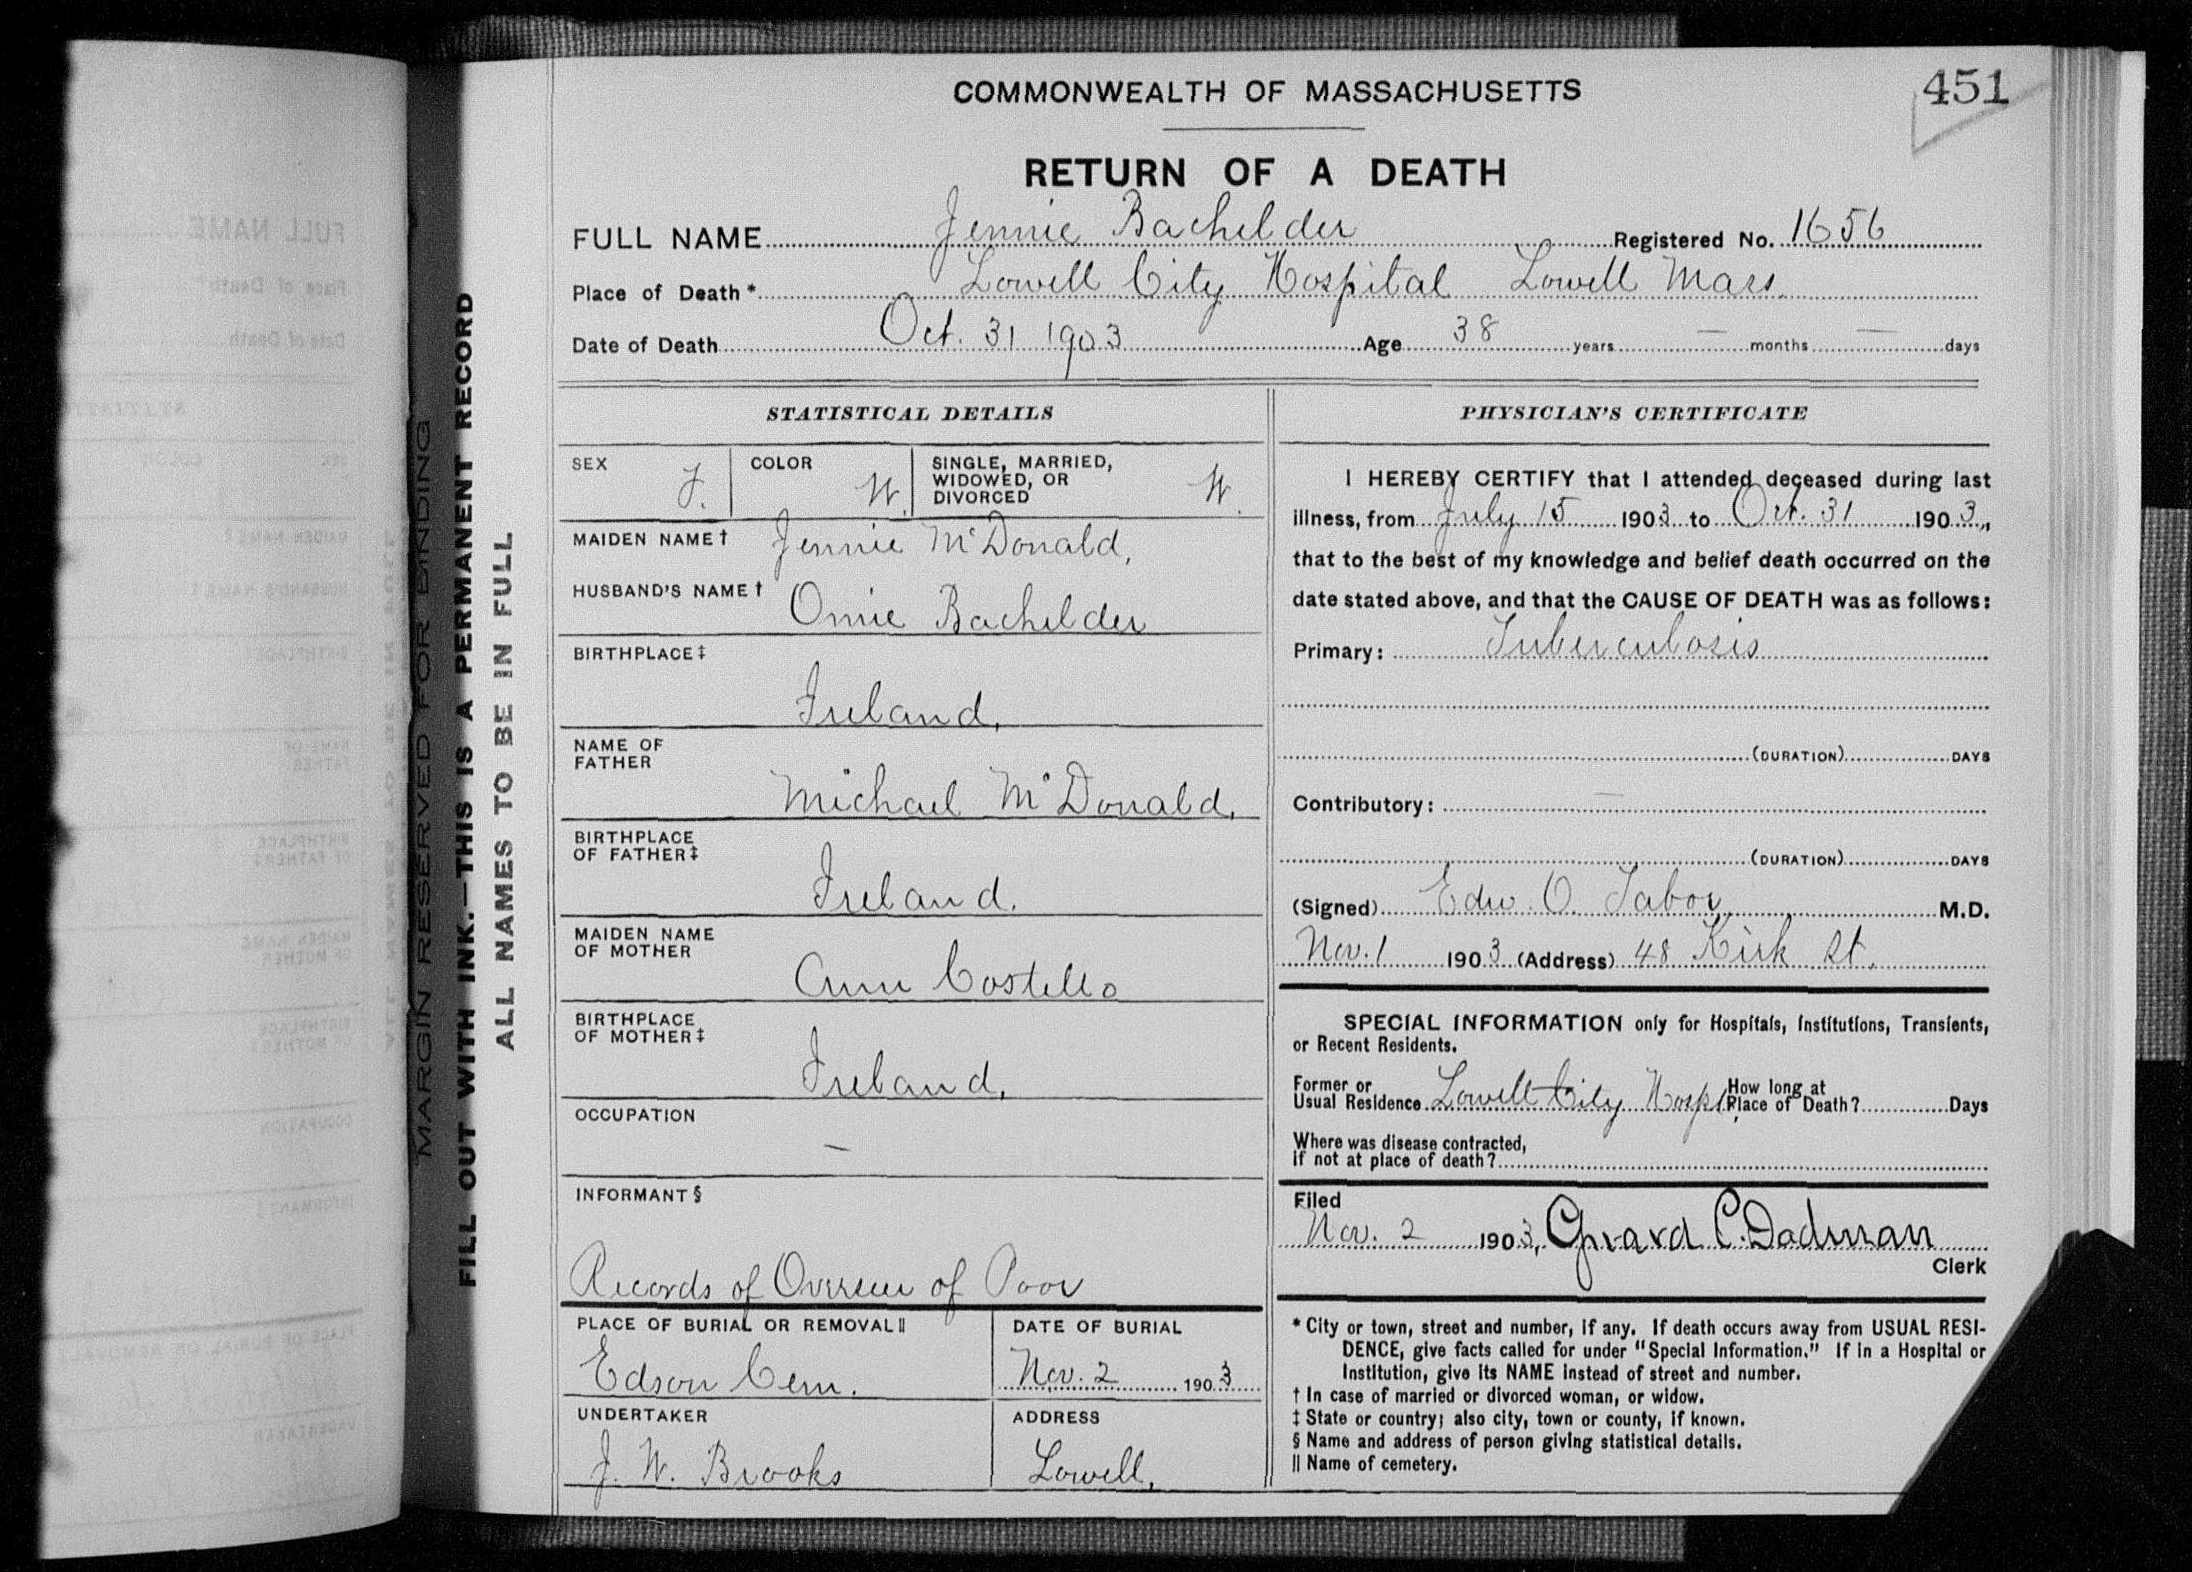 451
COMMONWEALTH OF MASSACHUSETTS
RETURN OF A DEATH
FULL NAME Jennie Bachelder Registered No. 1656
Place of Death * Lowell City Hospital Lowell Mass.
Date of Death Oct. 31 1903 Age 38 years — months — days
MARGIN RESERVED FOR BINDING
FILL OUT WITH INK.—THIS IS A PERMANENT RECORD
ALL NAMES TO BE IN FULL
STATISTICAL DETAILS
SEX F. COLOR W. SINGLE, MARRIED, WIDOWED, OR DIVORCED W.
MAIDEN NAME † Jennie McDonald,
HUSBAND'S NAME † Omie Bachelder
BIRTHPLACE ‡
Ireland,
NAME OF FATHER
Michael McDonald,
BIRTHPLACE OF FATHER ‡
Ireland.
MAIDEN NAME OF MOTHER
Ann Costello
BIRTHPLACE OF MOTHER ‡
Ireland,
OCCUPATION
—
INFORMANT §
Records of Overseer of Poor
PLACE OF BURIAL OR REMOVAL ||
Edson Cem.
DATE OF BURIAL
Nov. 2 1903
UNDERTAKER
J. W. Brooks
ADDRESS
Lowell,
PHYSICIAN'S CERTIFICATE
I HEREBY CERTIFY that I attended deceased during last
illness, from July 15 1903 to Oct. 31 1903,
that to the best of my knowledge and belief death occurred on the
date stated above, and that the CAUSE OF DEATH was as follows:
Primary: Tuberculosis
(DURATION) DAYS
Contributory: —
(DURATION) DAYS
(Signed) Edw. O. Tabor, M.D.
Nov. 1 1903 (Address) 48 Kirk St.
SPECIAL INFORMATION only for Hospitals, Institutions, Transients,
or Recent Residents.
Former or Usual Residence Lowell City Hosp. How long at Place of Death? Days
Where was disease contracted,
if not at place of death?
Filed
Nov. 2 1903, Girard P. Dadman
Clerk
* City or town, street and number, if any. If death occurs away from USUAL RESI-
DENCE, give facts called for under "Special Information." If in a Hospital or
Institution, give its NAME instead of street and number.
† In case of married or divorced woman, or widow.
‡ State or country; also city, town or county, if known.
§ Name and address of person giving statistical details.
|| Name of cemetery.